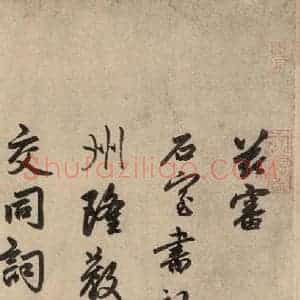 茲審
石室書記
州隆教
交同詞
Shufaziliao.com